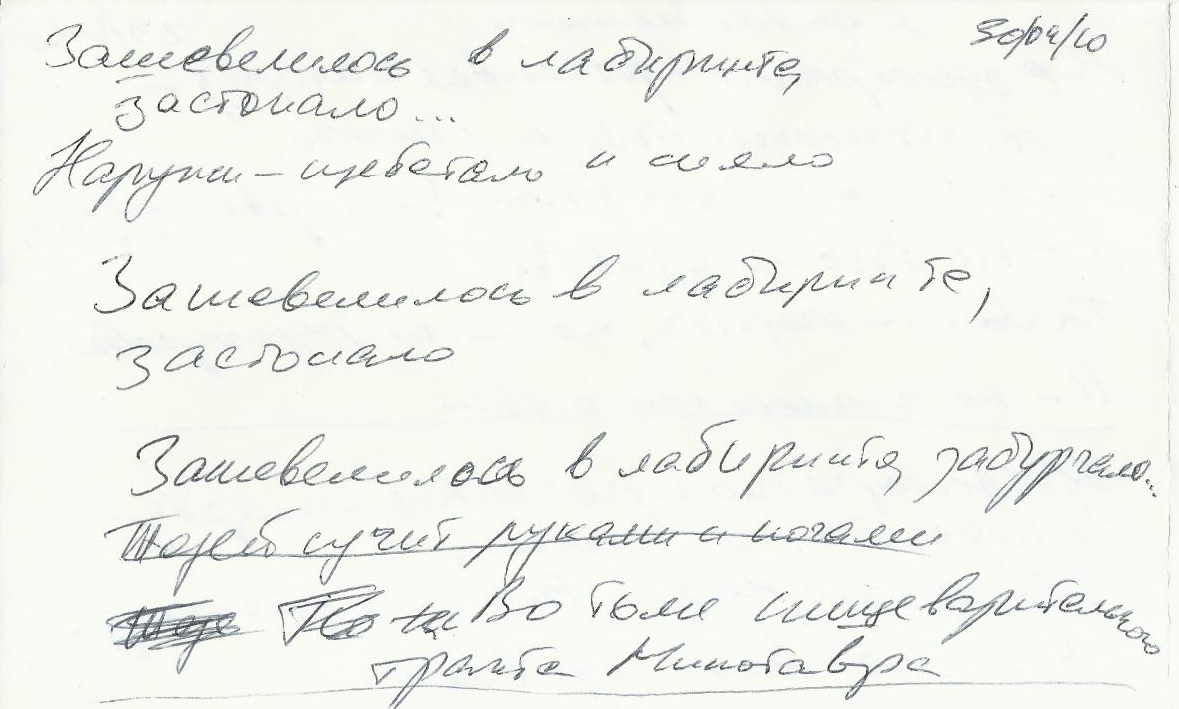 30/04/10
Зашевелилось в лабиринте,
застонало...
Наружи – щебетало и сияло
Зашевелилось в лабиринте,
застонало
Зашевелилось в лабиринте, забурчало...
Тезей сучит руками и ногами
Во тьме пищеварительного
тракта Минотавра